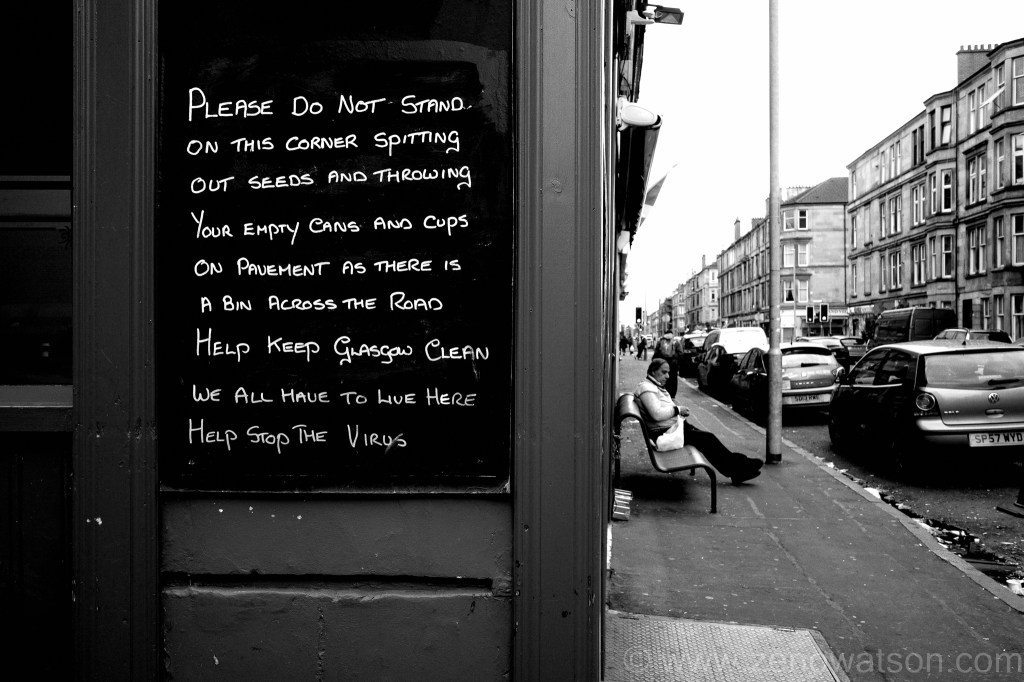 PLEASE DO NOT STAND
ON THIS CORNER SPITTING
OUT SEEDS AND THROWING
YOUR EMPTY CANS AND CUPS
ON PAVEMENT AS THERE IS
A BIN ACROSS THE ROAD
HELP KEEP GLASGOW CLEAN
WE ALL HAVE TO LIVE HERE
HELP STOP THE VIRUS
SP57 WYD
© www.zenowatson.com